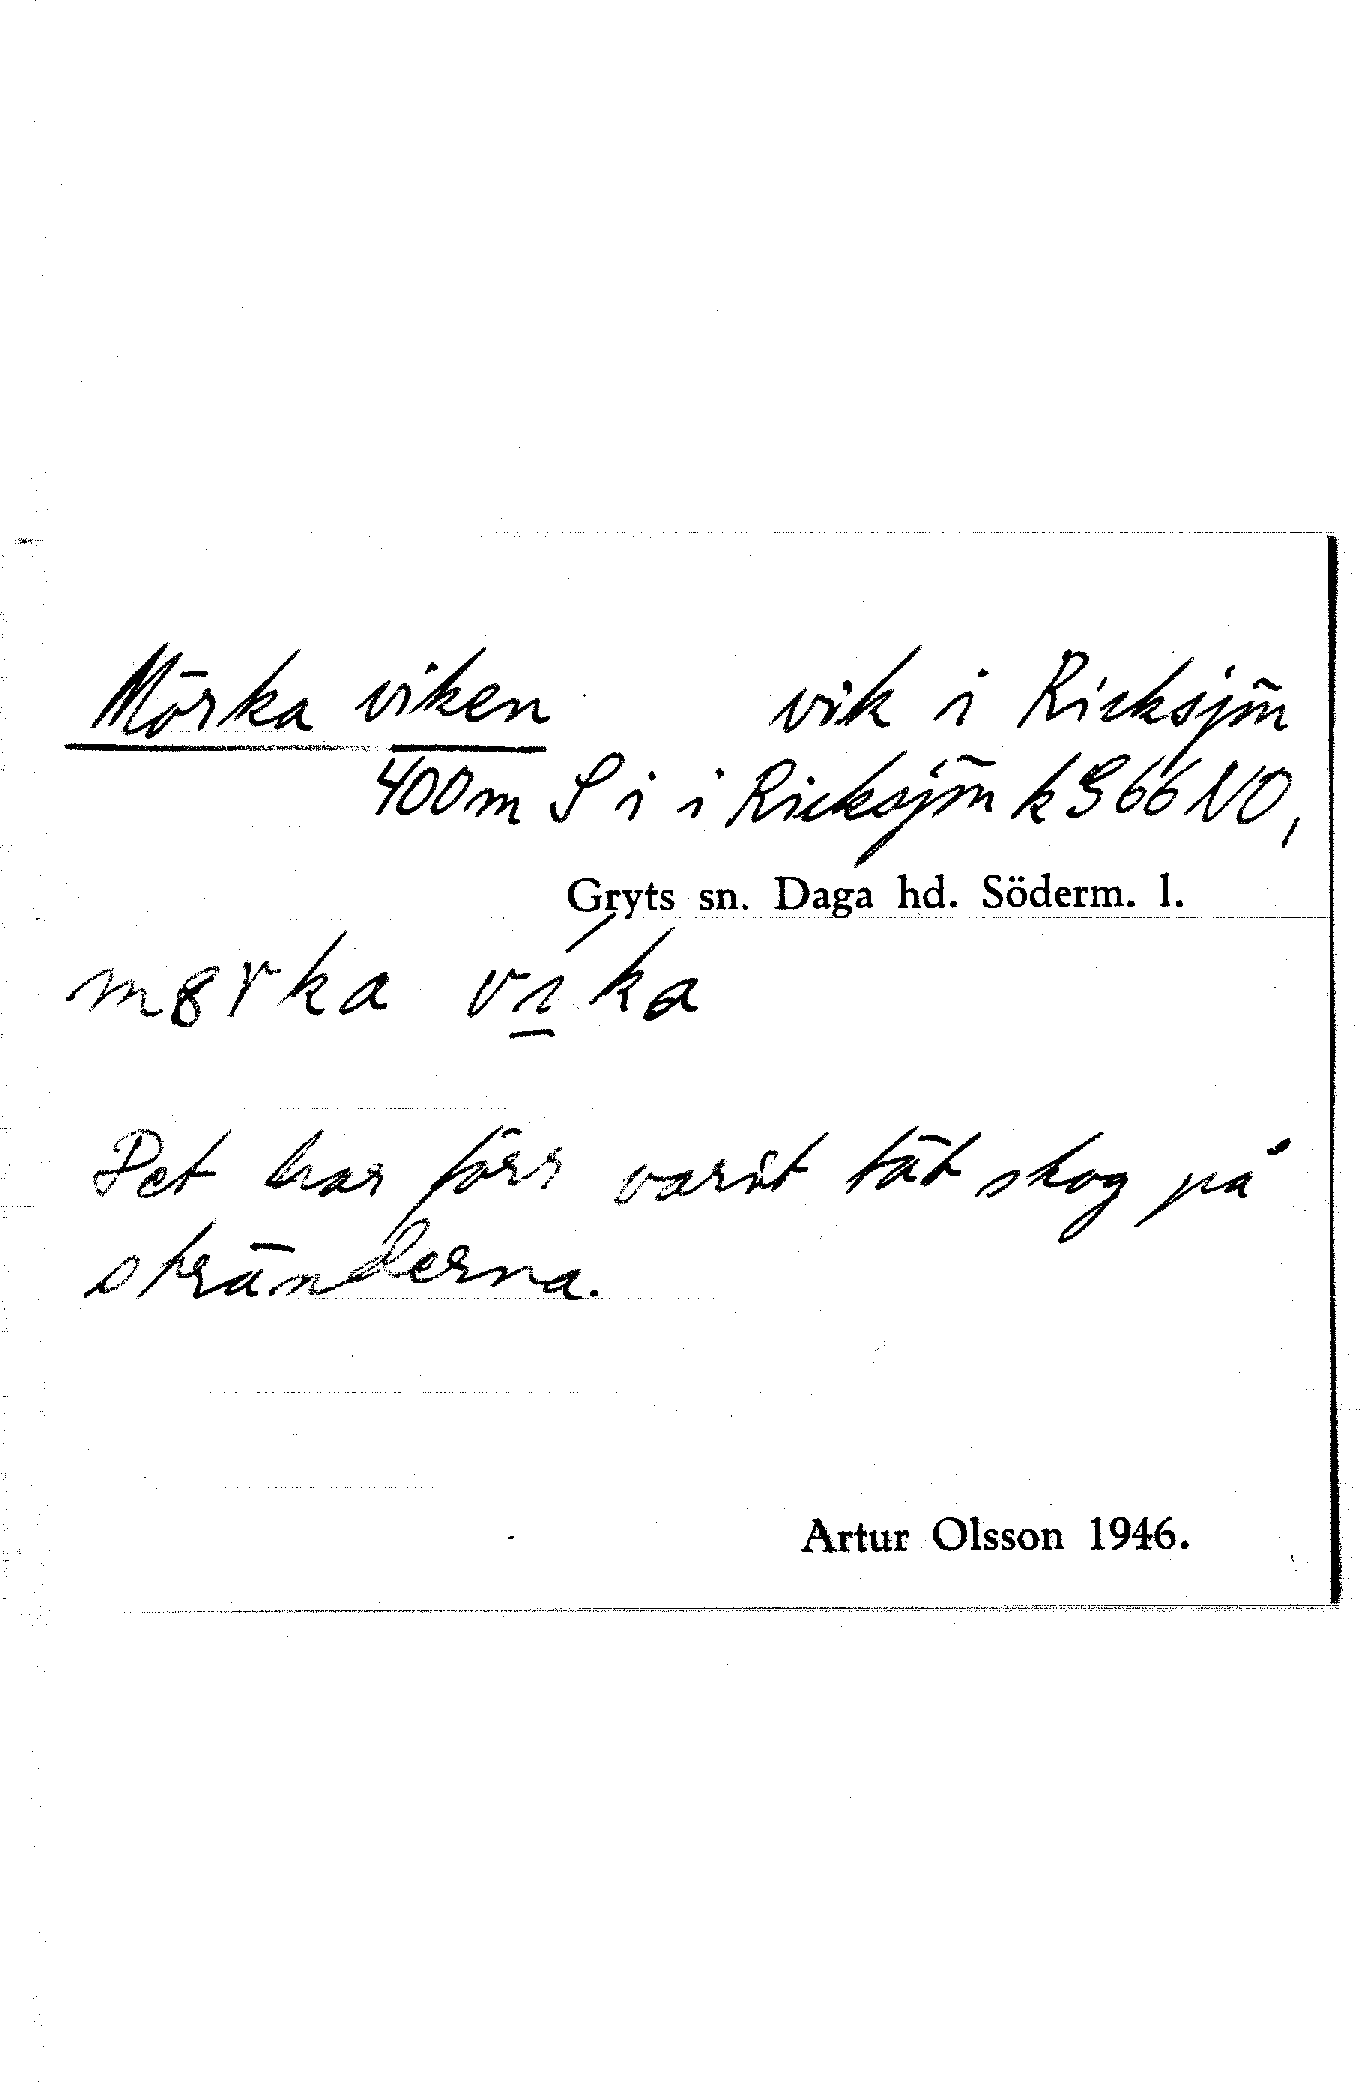 Mörka viken vik i Ricksjön
400m S i i Ricksjön k 966 NO,
Gryts sn. Daga hd. Söderm. l.
mȣrka vi̲ka
Det har förr varit tät skog på
stränderna.
Artur Olsson 1946.